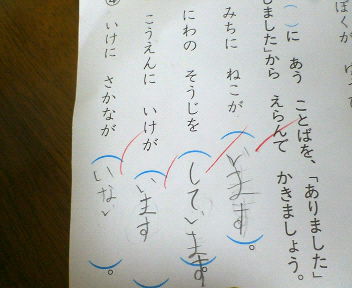 ぼくが
( )に あう ことばを、「ありました」
しました」から えらんで かきましょう。
みちに ねこが(います)。
にわの そうじを(しています)。
こうえんに いけが(います
④ いけに さかなが(いない)。